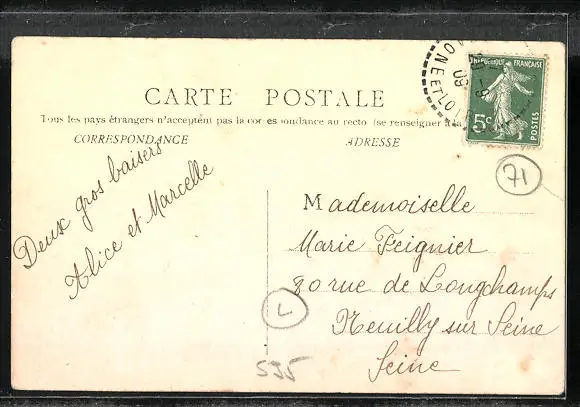 CARTE POSTALE
Tous les pays étrangers n'acceptent pas la correspondance au recto (se renseigner à la
CORRESPONDANCE
ADRESSE
RÉPUBLIQUE FRANÇAISE
5c
POSTES
ONE ET LOIRE
09
71
Deux gros baisers
Alice et Marcelle
Mademoiselle
Marie Feignier
80 rue de Longchamps
Neuilly sur Seine
Seine
L
535